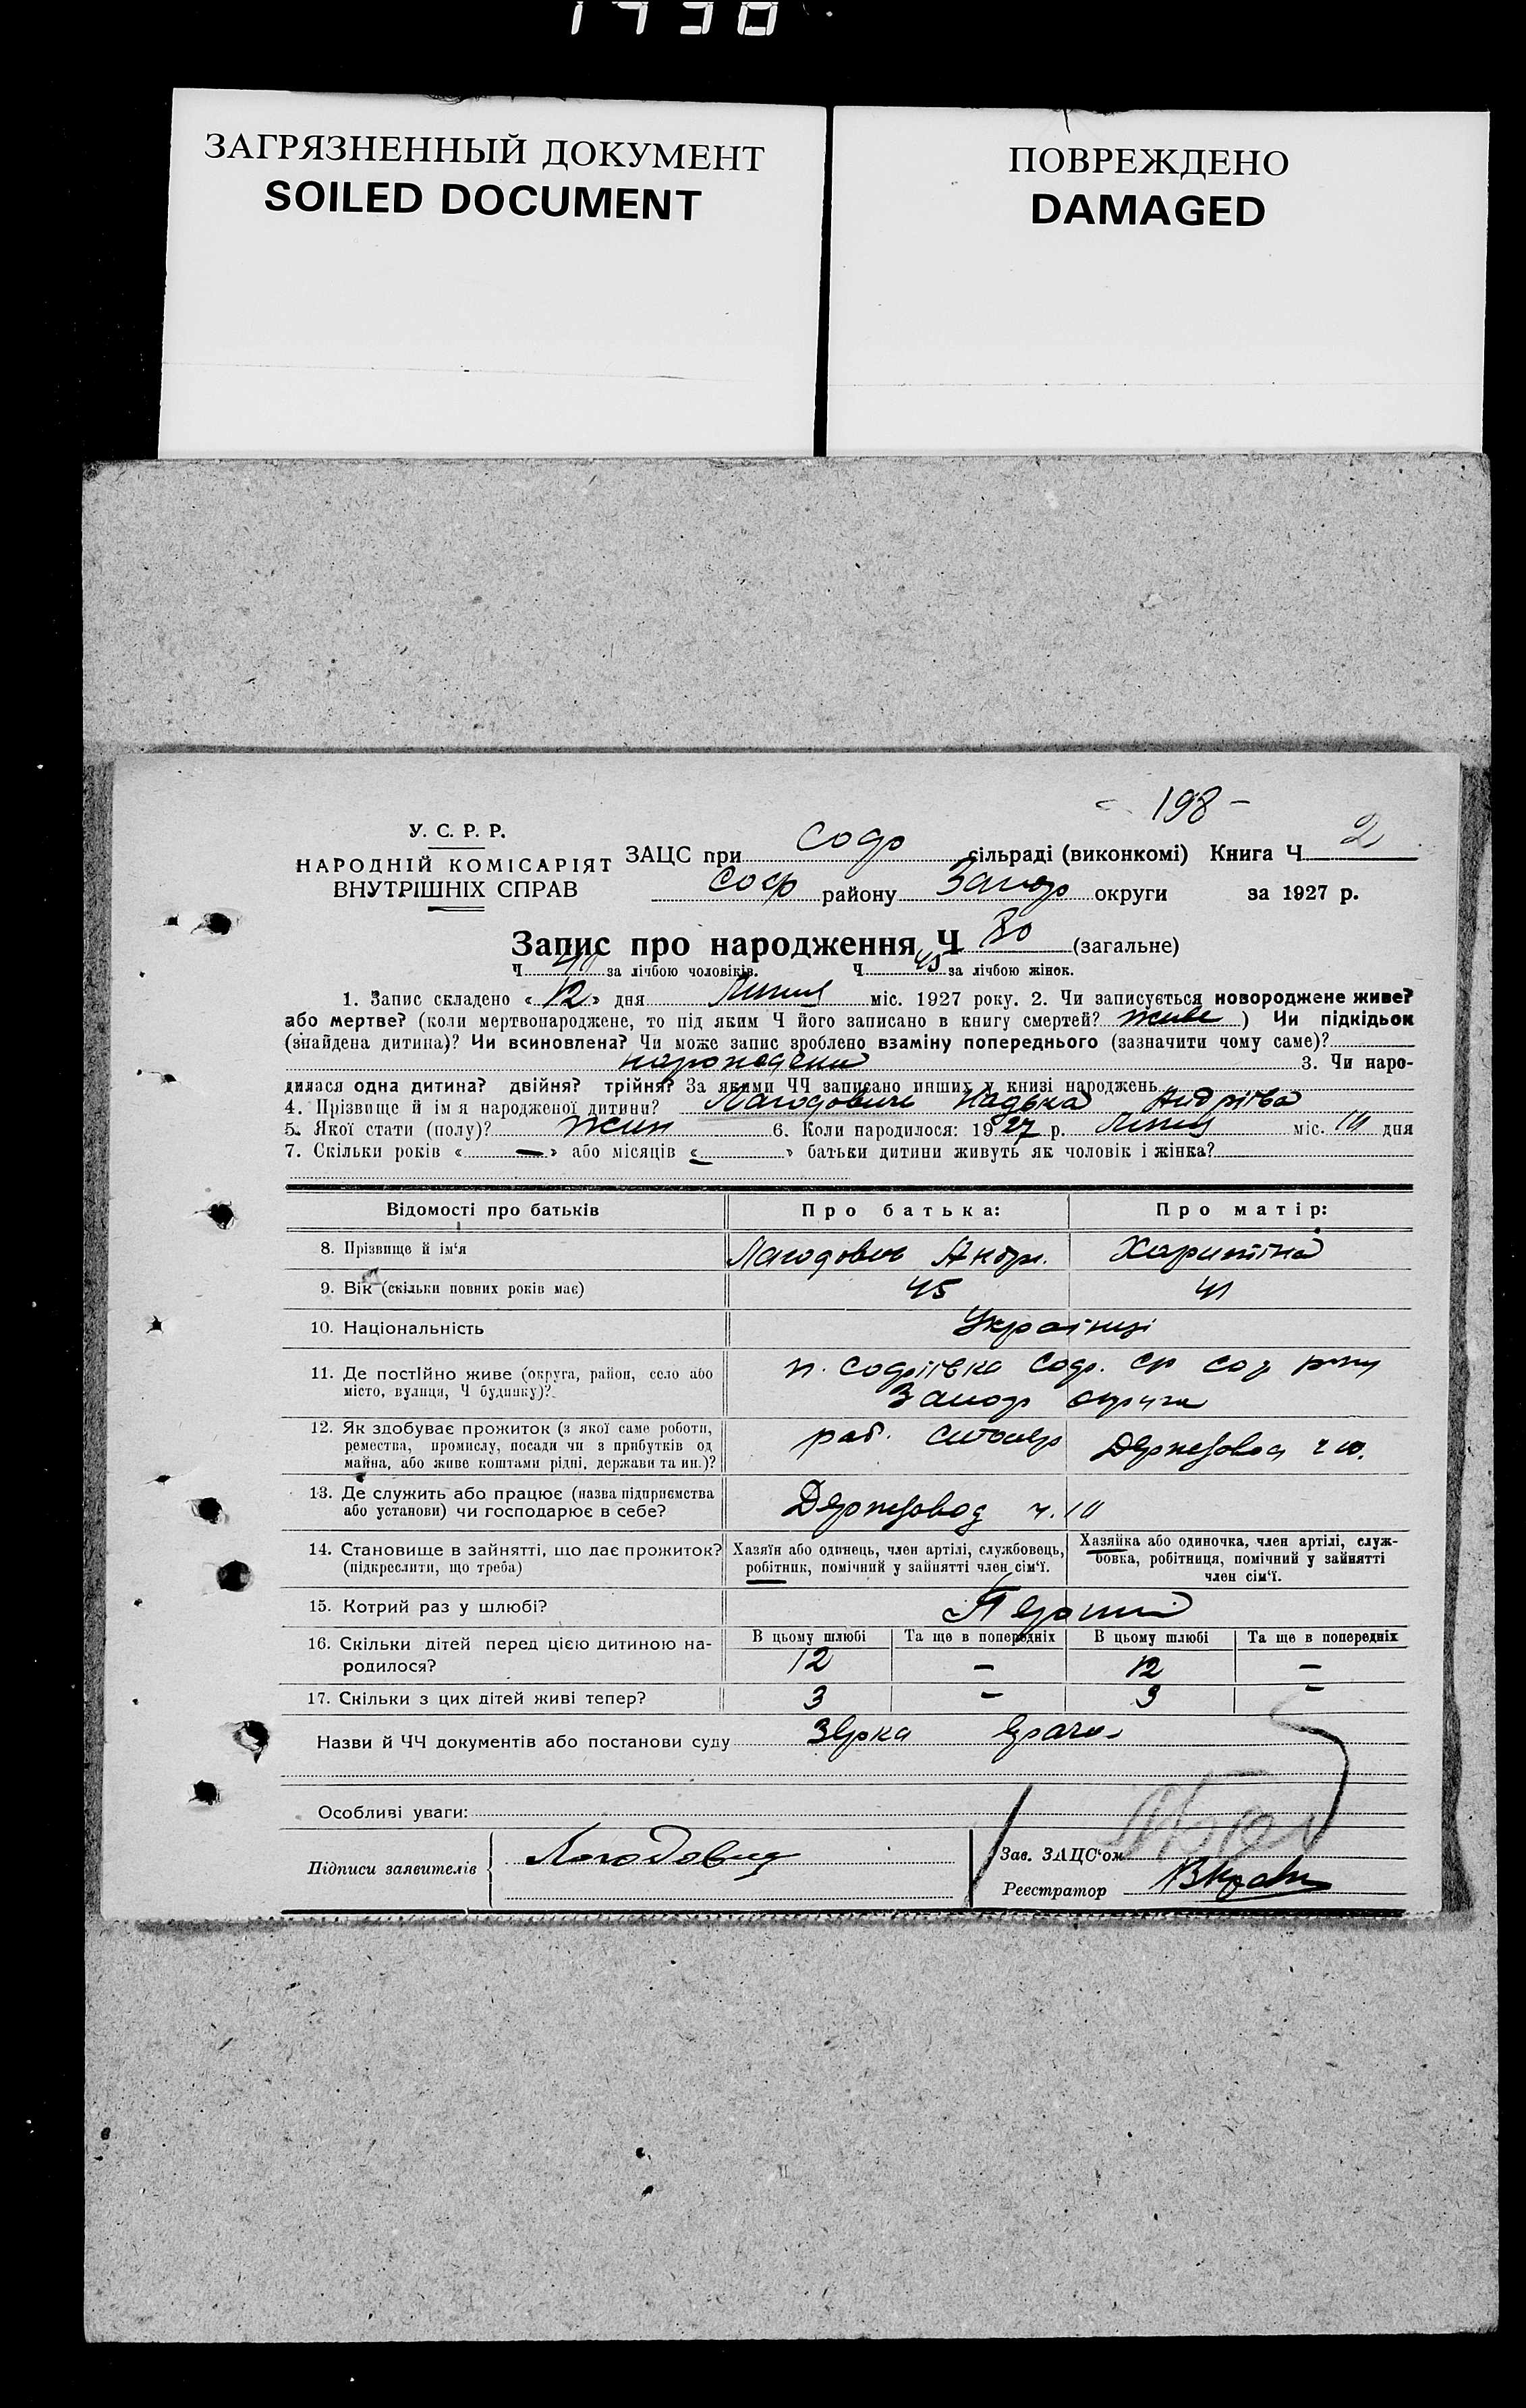 ЗАГРЯЗНЕННЫЙ ДОКУМЕНТ
SOILED DOCUMENT
ПОВРЕЖДЕНО
DAMAGED
198 -
У. С. Р. Р.
НАРОДНІЙ КОМІСАРІЯТ
ВНУТРІШНІХ СПРАВ
ЗАЦС при Софр сільраді (виконкомі) Книга Ч 2
Соф району Запор округи за 1927 р.
Запис про народження Ч 80 (загальне)
Ч 40 за лічбою чоловіків. Ч 45 за лічбою жінок.
1. Запис складено « 12 » дня Липня міс. 1927 року. 2. Чи записується новороджене живе?
або мертве? (коли мертвонароджене, то під яким Ч його записано в книгу смертей? живе ) Чи підкідьок
(знайдена дитина)? Чи всиновлена? Чи може запис зроблено взаміну попереднього (зазначити чому саме)?
3. Чи наро-
дилася одна дитина? двійня? трійня? За якими ЧЧ записано инших у книзі народжень
4. Прізвище й ім я народженої дитини? Лагодович Надька Андріева
5. Якої стати (полу)? жин 6. Коли народилося: 1927 р. Липня міс. 10 дня
7. Скільки років « — » або місяців « — » батьки дитини живуть як чоловік і жінка?
Відомості про батьків
Про батька:
Про матір:
8. Прізвище й ім'я Лагодович Андр. Харитіна
9. Вік (скільки повних років має) 45 41
10. Національність Українці
11. Де постійно живе (округа, район, село або
місто, вулиця, Ч будинку)?
Запор округи
12. Як здобуває прожиток (з якої саме роботи,
ремества, промислу, посади чи з прибутків од
майна, або живе коштами рідні, держави та ин.)?
раб. столяр
13. Де служить або працює (назва підприємства
або установи) чи господарює в себе?
Держзавод ч. 10
14. Становище в зайнятті, що дає прожиток?
(підкреслити, що треба)
Хазяїн або одинець, член артілі, службовець,
робітник, помічний у зайнятті член сім'ї.
Хазяйка або одиночка, член артілі, служ-
бовка, робітниця, помічний у зайнятті
член сім'ї.
15. Котрий раз у шлюбі? Перший
16. Скільки дітей перед цією дитиною на-
родилося?
В цьому шлюбі Та ще в попередніх В цьому шлюбі Та ще в попередніх
12 — 12 —
17. Скільки з цих дітей живі тепер? 3 — 3 —
Назви й ЧЧ документів або постанови суду
Особливі уваги:
Підписи заявителів Логодович
Зав. ЗАЦС'ом
Реєстратор